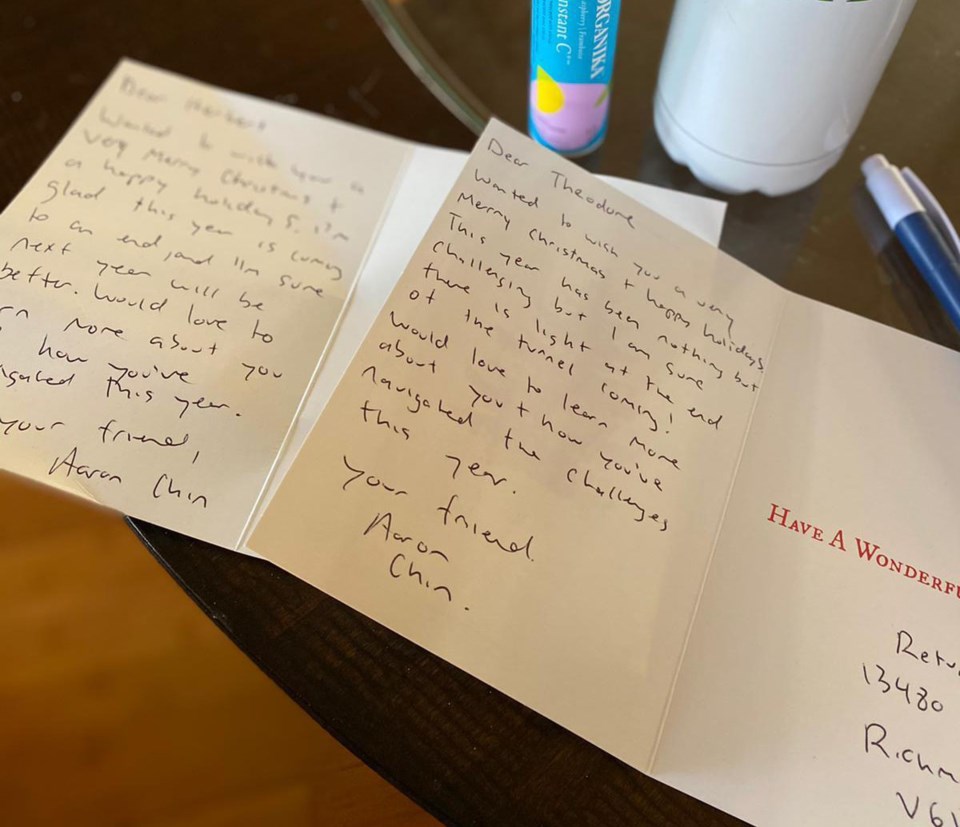 Dear Herbert
Wanted to wish you a
very Merry Christmas +
a happy holidays. I'm
glad this year is coming
to an end, and I'm sure
next year will be
better. Would love to
more about you
how you've
this year.
your friend,
Aaron Chin
Dear Theodore
Wanted to wish you a very
Merry Christmas + happy holidays
This year has been nothing but
challenging but I am sure
there is light at the end
of the tunnel coming!
Would love to learn more
about you + how you've
navigated the challenges
this year.
Your friend.
Aaron
Chin.
HAVE A WONDERFU
Retu
13480
Richm
V6
ORGANIKA
nstant C